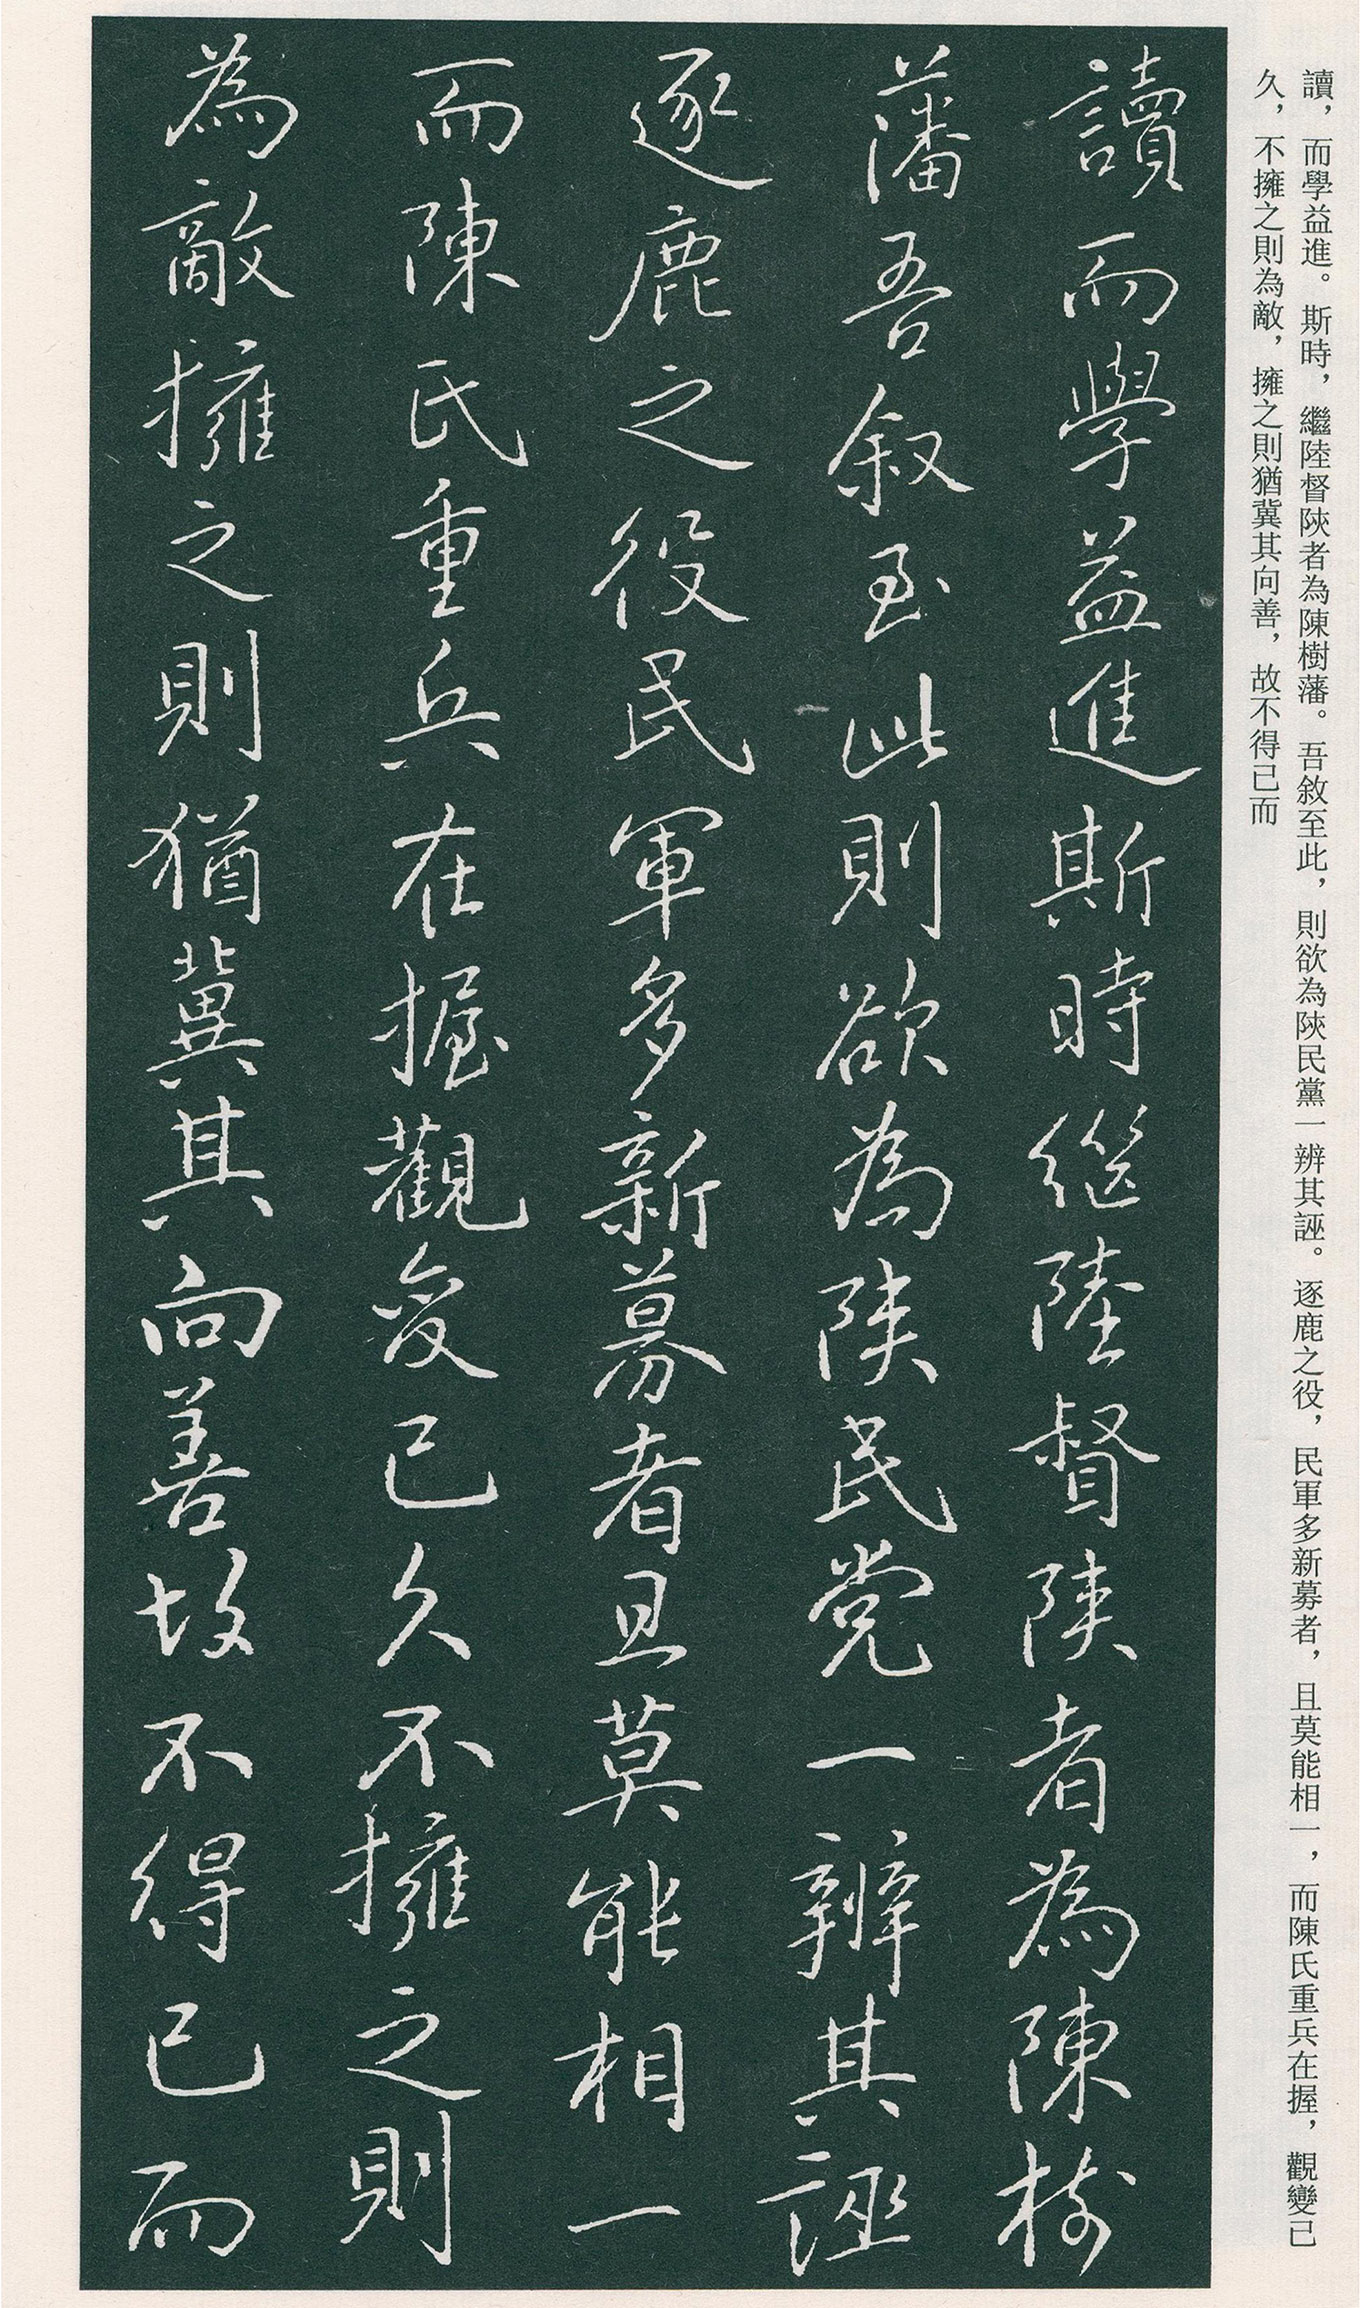 讀，而學益進。斯時，繼陸督陝者為陳樹藩。吾敘至此，則欲為陝民黨一辨其誣。逐鹿之役，民軍多新募者，且莫能相一，而陳氏重兵在握，觀變已
久，不擁之則為敵，擁之則猶冀其向善，故不得已而
讀而學益進斯時繼陸督陝者為陳樹
藩吾叙至此則欲為陝民党一辨其誣
逐鹿之役民軍多新募者且莫能相一
而陳氏重兵在握觀變已久不擁之則
為敵擁之則猶冀其向善故不得已而